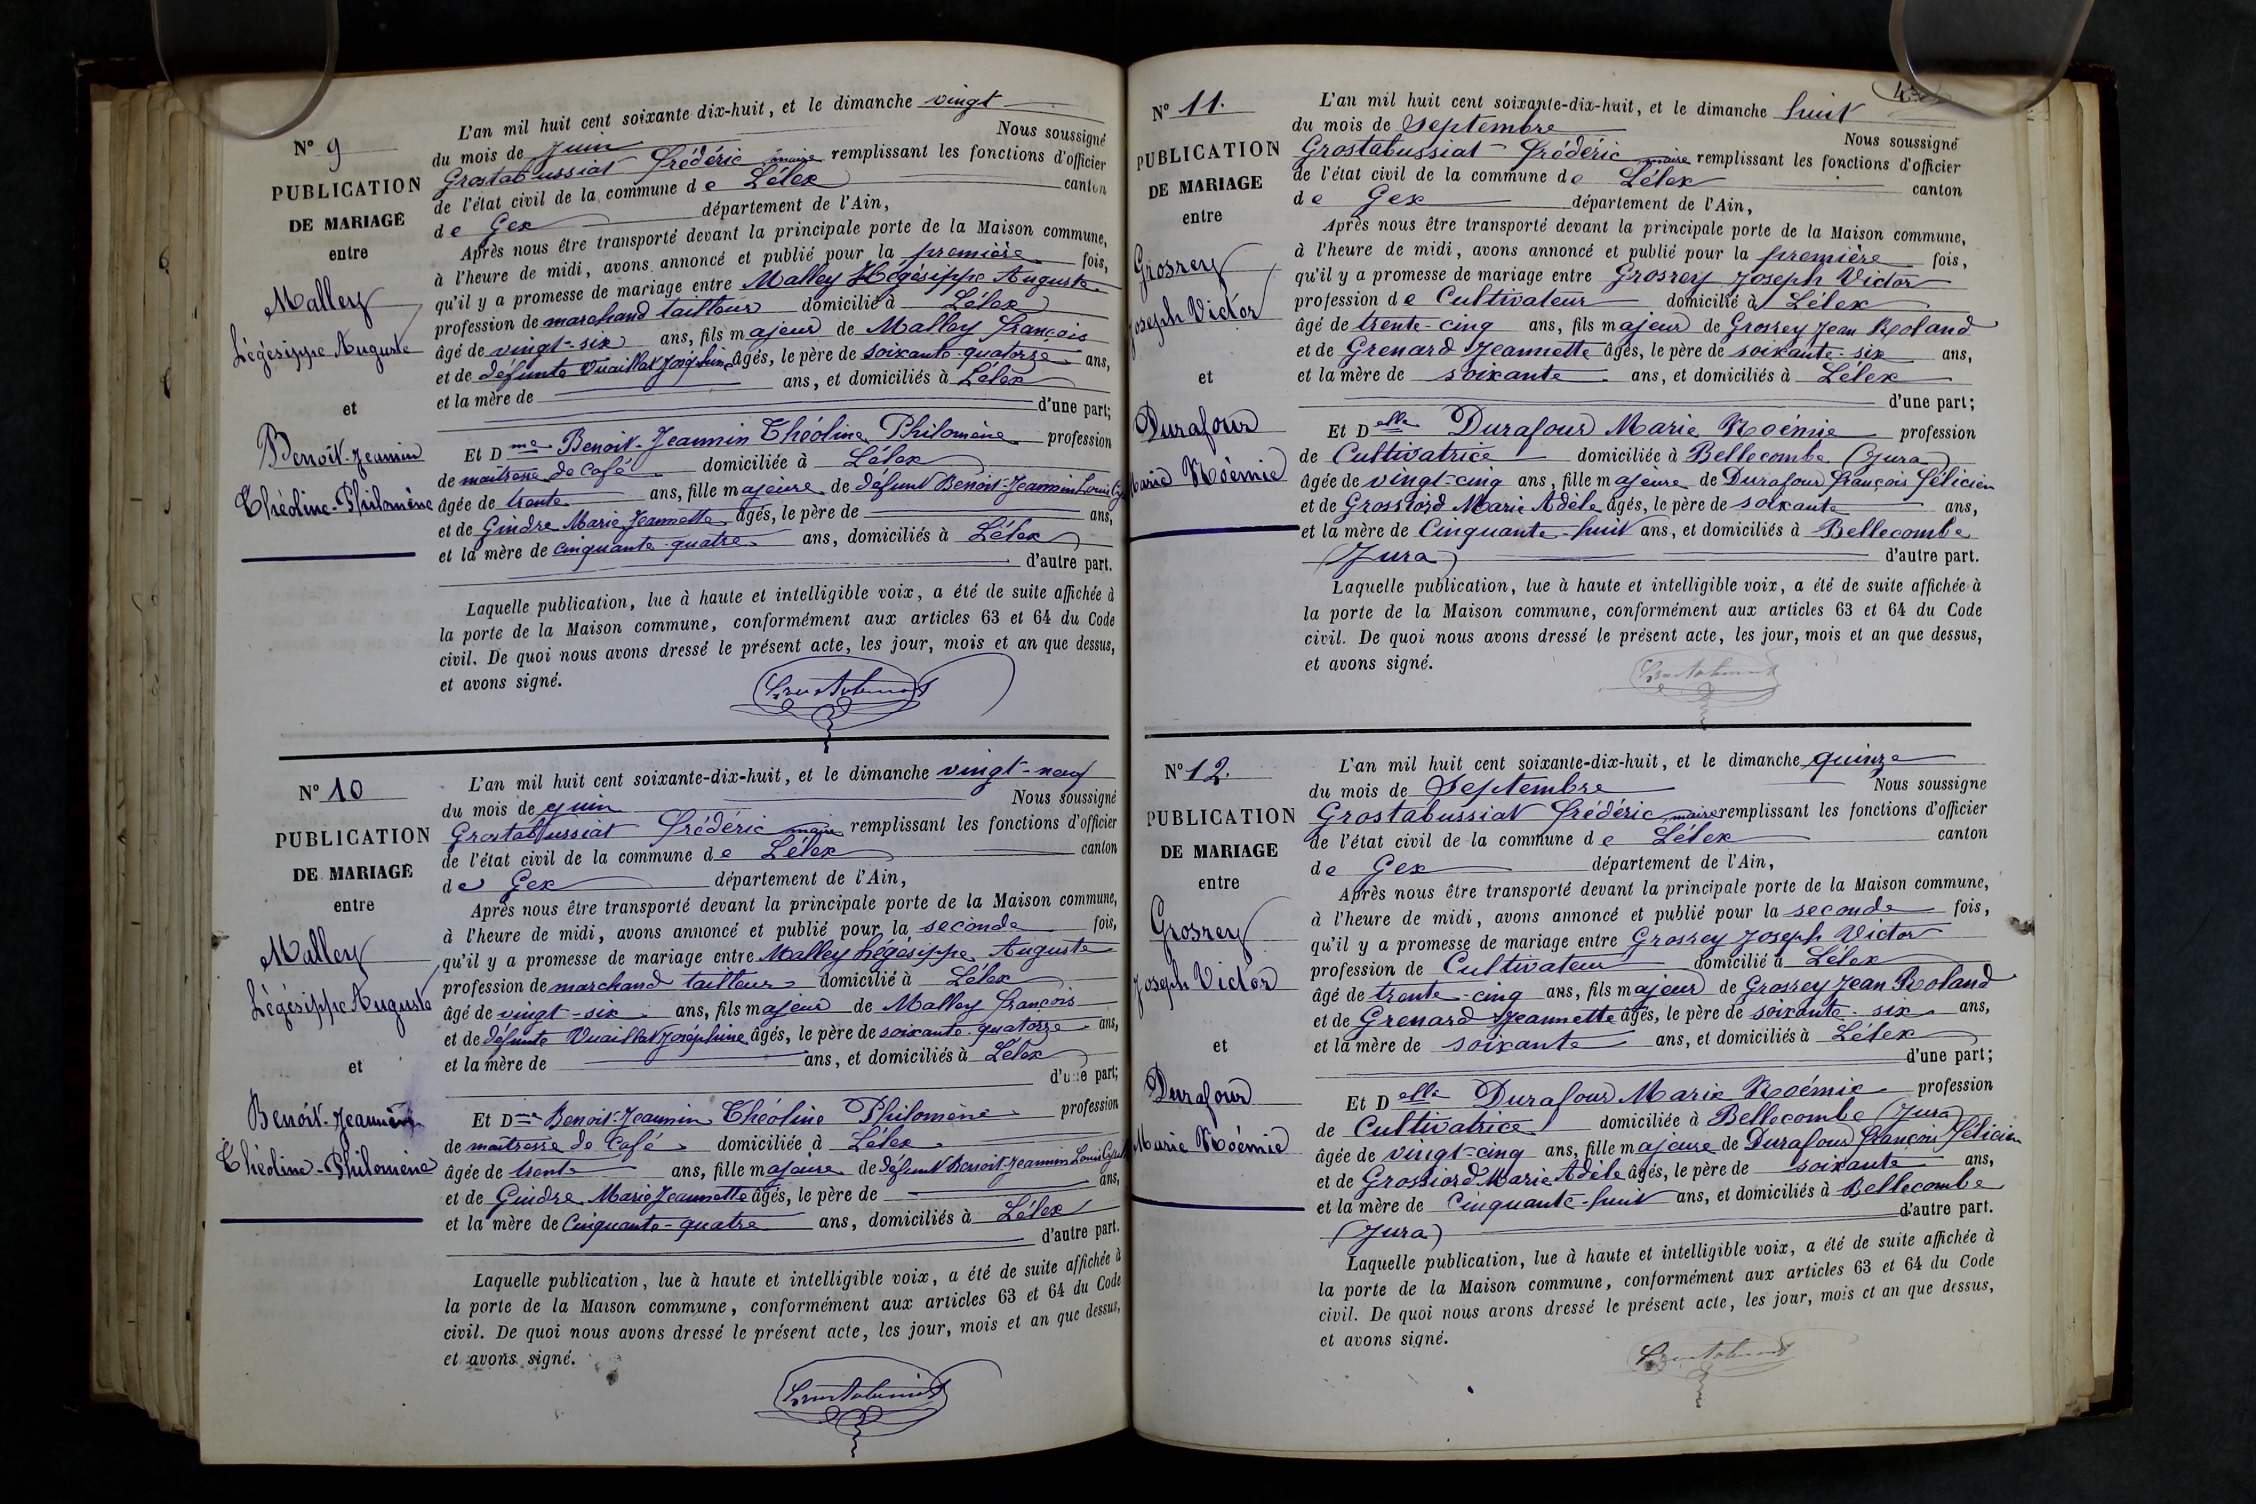 N° 9
PUBLICATION
DE MARIAGE
entre
Malley
Légésippe Auguste
et
Benoit-Jeannin
Théoline-Philomène
L'an mil huit cent soixante-dix-huit, et le dimanche vingt
du mois de Juin Nous soussigné
Grostabussiat Frédéric maire remplissant les fonctions d'officier
de l'état civil de la commune de Lélex canton
de Gex département de l'Ain,
Après nous être transporté devant la principale porte de la Maison commune,
à l'heure de midi, avons annoncé et publié pour la première fois,
qu'il y a promesse de mariage entre Malley Hégésippe Auguste
profession de marchand tailleur domicilié à Lélex
âgé de vingt-six ans, fils majeur de Malley François
et de défunte Vuaillat Joséphine âgés, le père de soixante-quatorze ans,
et la mère de ans, et domiciliés à Lélex
d'une part;
Et Dme Benoit-Jeannin Théoline Philomène profession
de maîtresse de café domiciliée à Lélex
âgée de trente ans, fille majeure de défunt Benoit-Jeannin Louis
et de Gindre Marie Jeannette âgés, le père de ans,
et la mère de cinquante-quatre ans, domiciliés à Lélex
d'autre part.
Laquelle publication, lue à haute et intelligible voix, a été de suite affichée à
la porte de la Maison commune, conformément aux articles 63 et 64 du Code
civil. De quoi nous avons dressé le présent acte, les jour, mois et an que dessus,
et avons signé.
N° 10
PUBLICATION
DE MARIAGE
entre
Malley
Légésippe Auguste
et
Benoit-Jeannin
Théoline-Philomène
L'an mil huit cent soixante-dix-huit, et le dimanche vingt-neuf
du mois de Juin Nous soussigné
Grostabussiat Frédéric maire remplissant les fonctions d'officier
de l'état civil de la commune de Lélex canton
de Gex département de l'Ain,
Après nous être transporté devant la principale porte de la Maison commune,
à l'heure de midi, avons annoncé et publié pour la seconde fois,
qu'il y a promesse de mariage entre Malley hégésippe Auguste
profession de marchand tailleur domicilié à Lélex
âgé de vingt-six ans, fils majeur de Malley François
et de défunte Vuaillat Joséphine âgés, le père de soixante-quatorze ans,
et la mère de ans, et domiciliés à Lélex
d'une part;
Et Dme Benoit-Jeannin Théoline Philomène profession
de maîtresse de Café domiciliée à Lélex
âgée de trente ans, fille majeure de défunt Benoit-Jeannin Louis
et de Gindre Marie Jeannette âgés, le père de ans,
et la mère de Cinquante-quatre ans, domiciliés à Lélex
d'autre part.
Laquelle publication, lue à haute et intelligible voix, a été de suite affichée à
la porte de la Maison commune, conformément aux articles 63 et 64 du Code
civil. De quoi nous avons dressé le présent acte, les jour, mois et an que dessus,
et avons signé.
N° 11.
PUBLICATION
DE MARIAGE
entre
Grosrey
Joseph Victor
et
Durafour
Marie Noémie
L'an mil huit cent soixante-dix-huit, et le dimanche huit
du mois de Septembre Nous soussigné
Grostabussiat Frédéric maire remplissant les fonctions d'officier
de l'état civil de la commune de Lélex canton
de Gex département de l'Ain,
Après nous être transporté devant la principale porte de la Maison commune,
à l'heure de midi, avons annoncé et publié pour la première fois,
qu'il y a promesse de mariage entre Grosrey Joseph Victor
profession de Cultivateur domicilié à Lélex
âgé de trente-cinq ans, fils majeur de Grosrey Jean Roland
et de Grenard Jeannette âgés, le père de soixante-six ans,
et la mère de soixante ans, et domiciliés à Lélex
d'une part;
Et Delle Durafour Marie Noémie profession
de Cultivatrice domiciliée à Bellecombe (Jura)
âgée de vingt-cinq ans, fille majeure de Durafour François Félicien
et de Grossiord Marie Adèle âgés, le père de soixante ans,
et la mère de Cinquante-huit ans, et domiciliés à Bellecombe
(Jura) d'autre part.
Laquelle publication, lue à haute et intelligible voix, a été de suite affichée à
la porte de la Maison commune, conformément aux articles 63 et 64 du Code
civil. De quoi nous avons dressé le présent acte, les jour, mois et an que dessus,
et avons signé.
N° 12.
PUBLICATION
DE MARIAGE
entre
Grosrey
Joseph Victor
et
Durafour
Marie Noémie
L'an mil huit cent soixante-dix-huit, et le dimanche quinze
du mois de Septembre Nous soussigné
Grostabussiat Frédéric maire remplissant les fonctions d'officier
de l'état civil de la commune de Lélex canton
de Gex département de l'Ain,
Après nous être transporté devant la principale porte de la Maison commune,
à l'heure de midi, avons annoncé et publié pour la seconde fois,
qu'il y a promesse de mariage entre Grosrey Joseph Victor
profession de Cultivateur domicilié à Lélex
âgé de trente-cinq ans, fils majeur de Grosrey Jean Roland
et de Grenard Jeannette âgés, le père de soixante-six ans,
et la mère de soixante ans, et domiciliés à Lélex
d'une part;
Et Delle Durafour Marie Noémie profession
de Cultivatrice domiciliée à Bellecombe (Jura)
âgée de vingt-cinq ans, fille majeure de Durafour François Félicien
et de Grossiord Marie Adèle âgés, le père de soixante ans,
et la mère de Cinquante-huit ans, et domiciliés à Bellecombe
(Jura) d'autre part.
Laquelle publication, lue à haute et intelligible voix, a été de suite affichée à
la porte de la Maison commune, conformément aux articles 63 et 64 du Code
civil. De quoi nous avons dressé le présent acte, les jour, mois et an que dessus,
et avons signé.